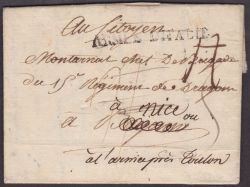 Au Citoyen
ARMÉE D'ITALIE
Montarnart Chef De Brigade
du 15e Régiment de Dragon
à nice
a ou
à l'armée près Toulon